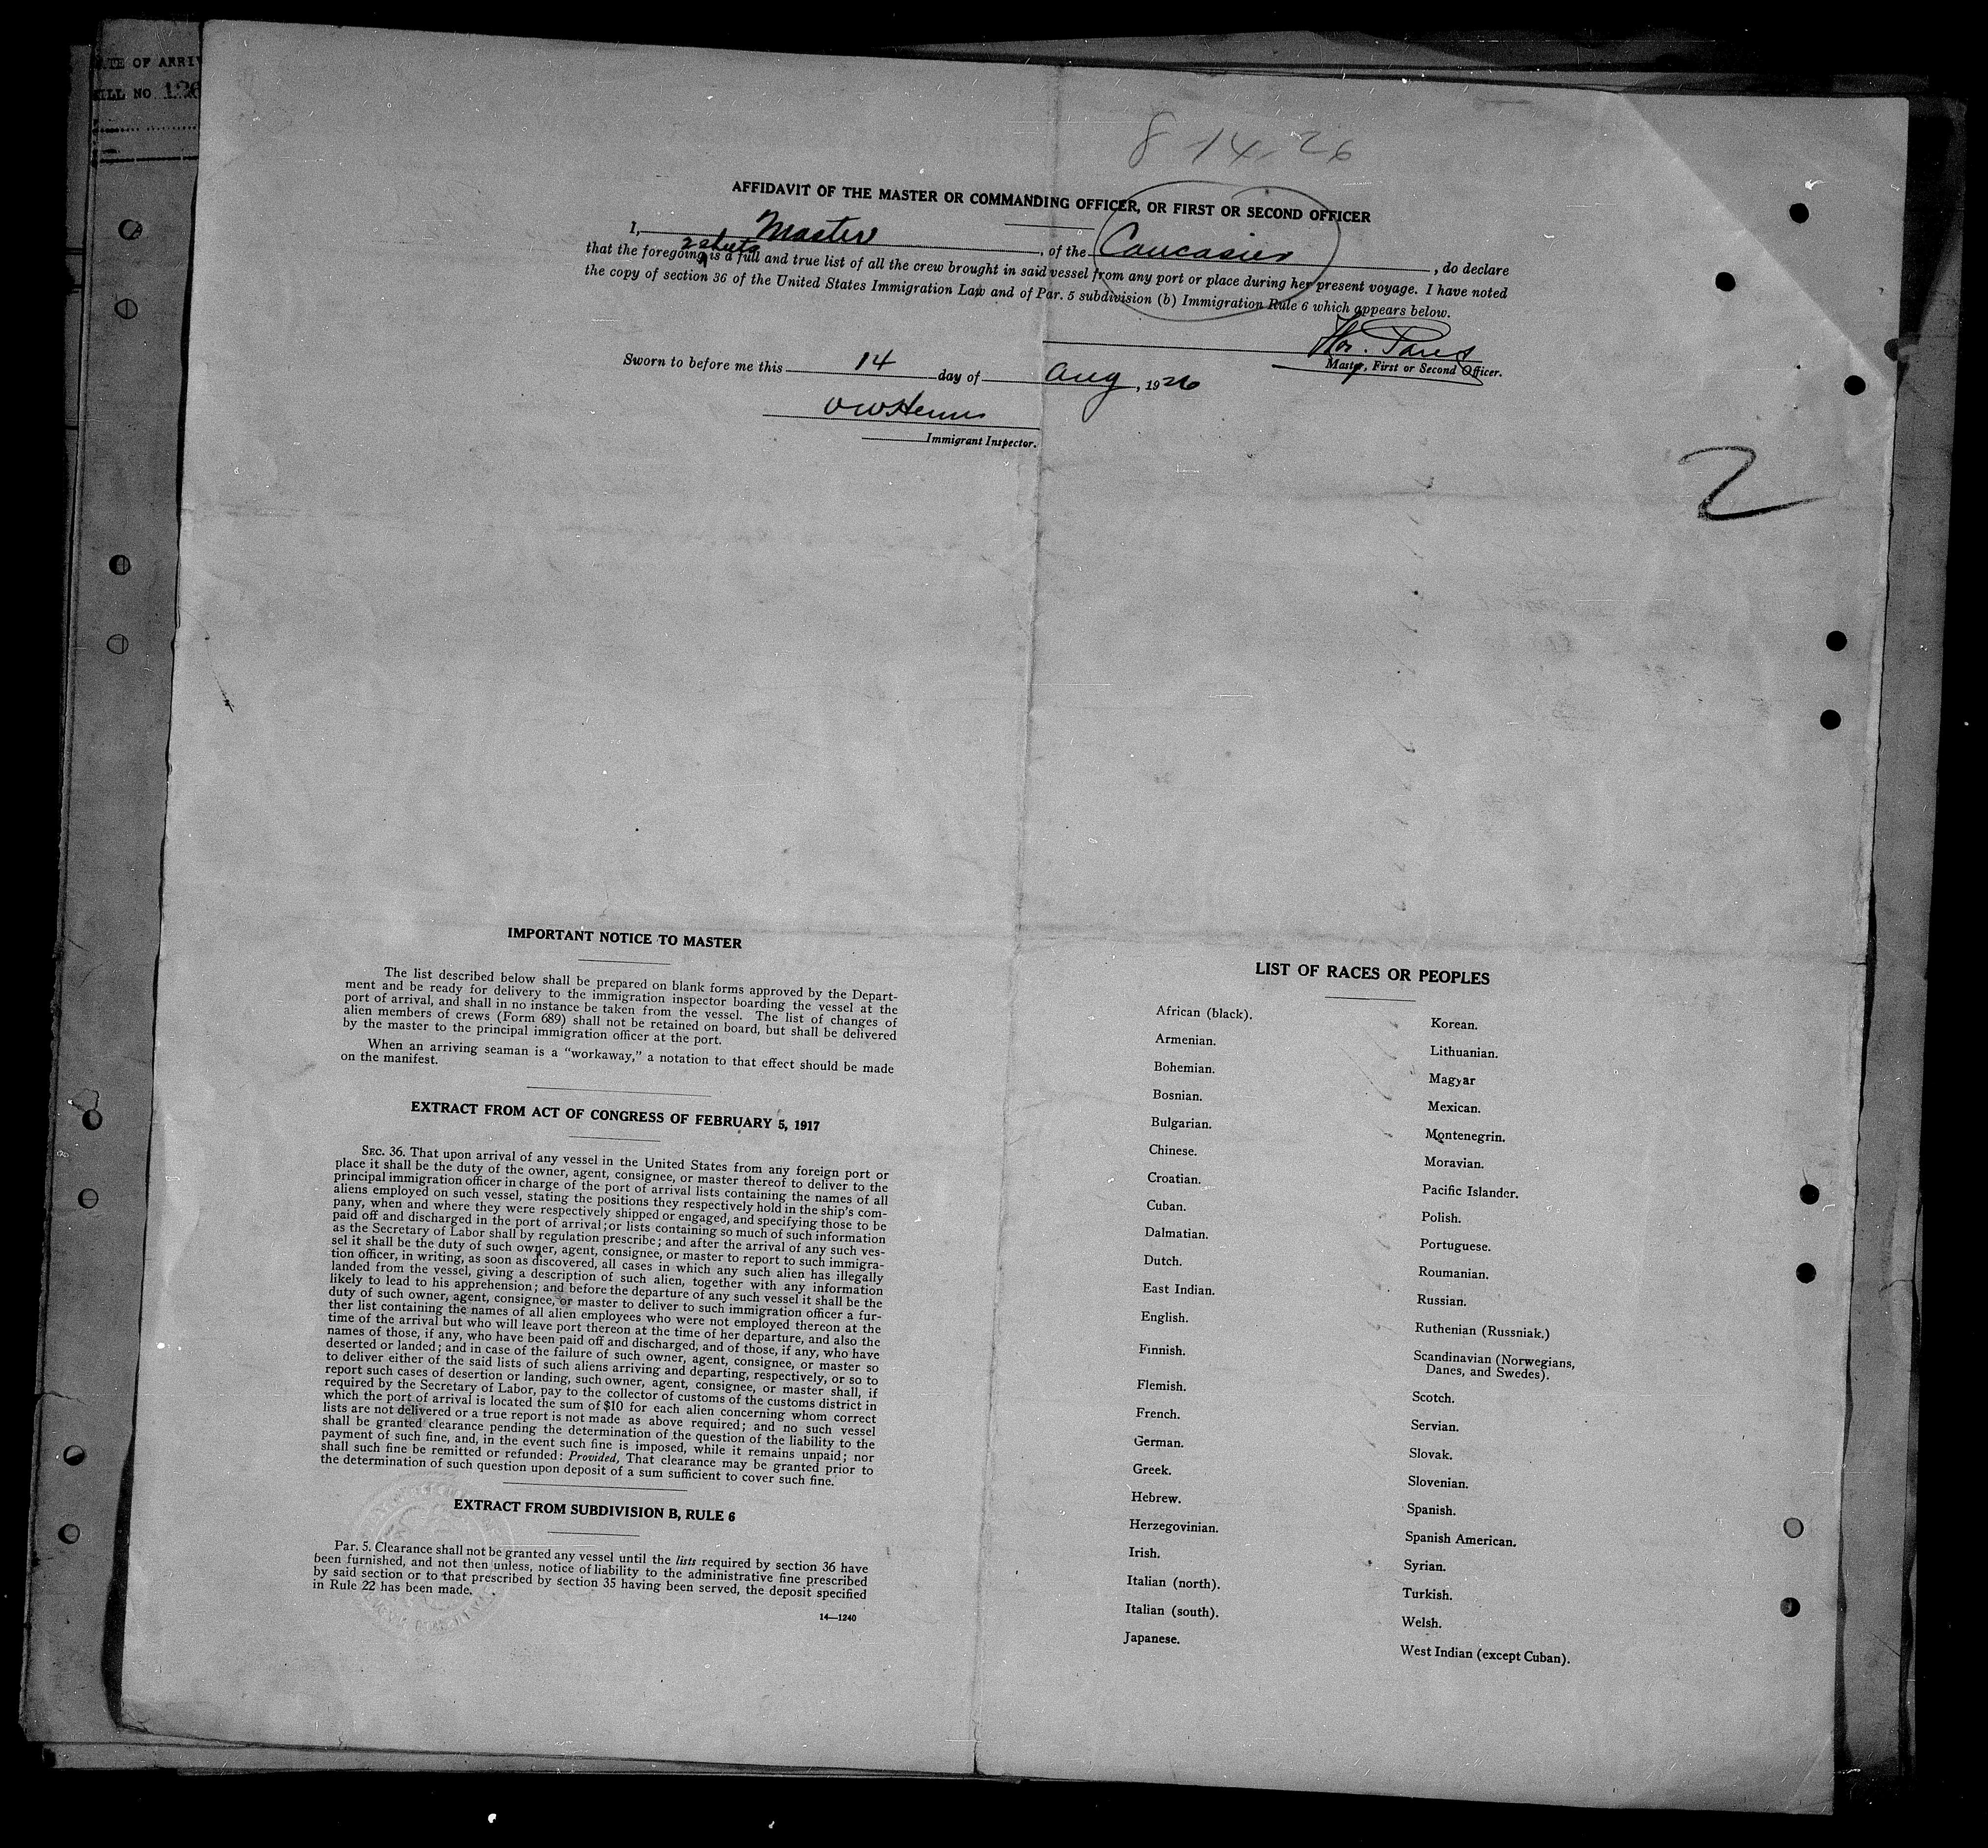 TE OF ARRIV
ILL NO 126
8 14-26
AFFIDAVIT OF THE MASTER OR COMMANDING OFFICER, OR FIRST OR SECOND OFFICER
I, Master, of the Caucasier, do declare
2 sheets
that the foregoing is a full and true list of all the crew brought in said vessel from any port or place during her present voyage. I have noted
the copy of section 36 of the United States Immigration Law and of Par. 5 subdivision (b) Immigration Rule 6 which appears below.
Master, First or Second Officer.
Sworn to before me this 14 day of Aug, 1926
Immigrant Inspector.
2
IMPORTANT NOTICE TO MASTER
The list described below shall be prepared on blank forms approved by the Depart-
ment and be ready for delivery to the immigration inspector boarding the vessel at the
port of arrival, and shall in no instance be taken from the vessel. The list of changes of
alien members of crews (Form 689) shall not be retained on board, but shall be delivered
by the master to the principal immigration officer at the port.
When an arriving seaman is a "workaway," a notation to that effect should be made
on the manifest.
EXTRACT FROM ACT OF CONGRESS OF FEBRUARY 5, 1917
SEC. 36. That upon arrival of any vessel in the United States from any foreign port or
place it shall be the duty of the owner, agent, consignee, or master thereof to deliver to the
principal immigration officer in charge of the port of arrival lists containing the names of all
aliens employed on such vessel, stating the positions they respectively hold in the ship's com-
pany, when and where they were respectively shipped or engaged, and specifying those to be
paid off and discharged in the port of arrival; or lists containing so much of such information
as the Secretary of Labor shall by regulation prescribe; and after the arrival of any such ves-
sel it shall be the duty of such owner, agent, consignee, or master to report to such immigra-
tion officer, in writing, as soon as discovered, all cases in which any such alien has illegally
landed from the vessel, giving a description of such alien, together with any information
likely to lead to his apprehension; and before the departure of any such vessel it shall be the
duty of such owner, agent, consignee, or master to deliver to such immigration officer a fur-
ther list containing the names of all alien employees who were not employed thereon at the
time of the arrival but who will leave port thereon at the time of her departure, and also the
names of those, if any, who have been paid off and discharged, and of those, if any, who have
deserted or landed; and in case of the failure of such owner, agent, consignee, or master so
to deliver either of the said lists of such aliens arriving and departing, respectively, or so to
report such cases of desertion or landing, such owner, agent, consignee, or master shall, if
required by the Secretary of Labor, pay to the collector of customs of the customs district in
which the port of arrival is located the sum of $10 for each alien concerning whom correct
lists are not delivered or a true report is not made as above required; and no such vessel
shall be granted clearance pending the determination of the question of the liability to the
payment of such fine, and, in the event such fine is imposed, while it remains unpaid; nor
shall such fine be remitted or refunded: Provided, That clearance may be granted prior to
the determination of such question upon deposit of a sum sufficient to cover such fine.
EXTRACT FROM SUBDIVISION B, RULE 6
Par. 5. Clearance shall not be granted any vessel until the lists required by section 36 have
been furnished, and not then unless, notice of liability to the administrative fine prescribed
by said section or to that prescribed by section 35 having been served, the deposit specified
in Rule 22 has been made.
14—1240
LIST OF RACES OR PEOPLES
African (black).
Armenian.
Bohemian.
Bosnian.
Bulgarian.
Chinese.
Croatian.
Cuban.
Dalmatian.
Dutch.
East Indian.
English.
Finnish.
Flemish.
French.
German.
Greek.
Hebrew.
Herzegovinian.
Irish.
Italian (north).
Italian (south).
Japanese.
Korean.
Lithuanian.
Magyar
Mexican.
Montenegrin.
Moravian.
Pacific Islander.
Polish.
Portuguese.
Roumanian.
Russian.
Ruthenian (Russniak.)
Scandinavian (Norwegians,
Danes, and Swedes).
Scotch.
Servian.
Slovak.
Slovenian.
Spanish.
Spanish American.
Syrian.
Turkish.
Welsh.
West Indian (except Cuban).